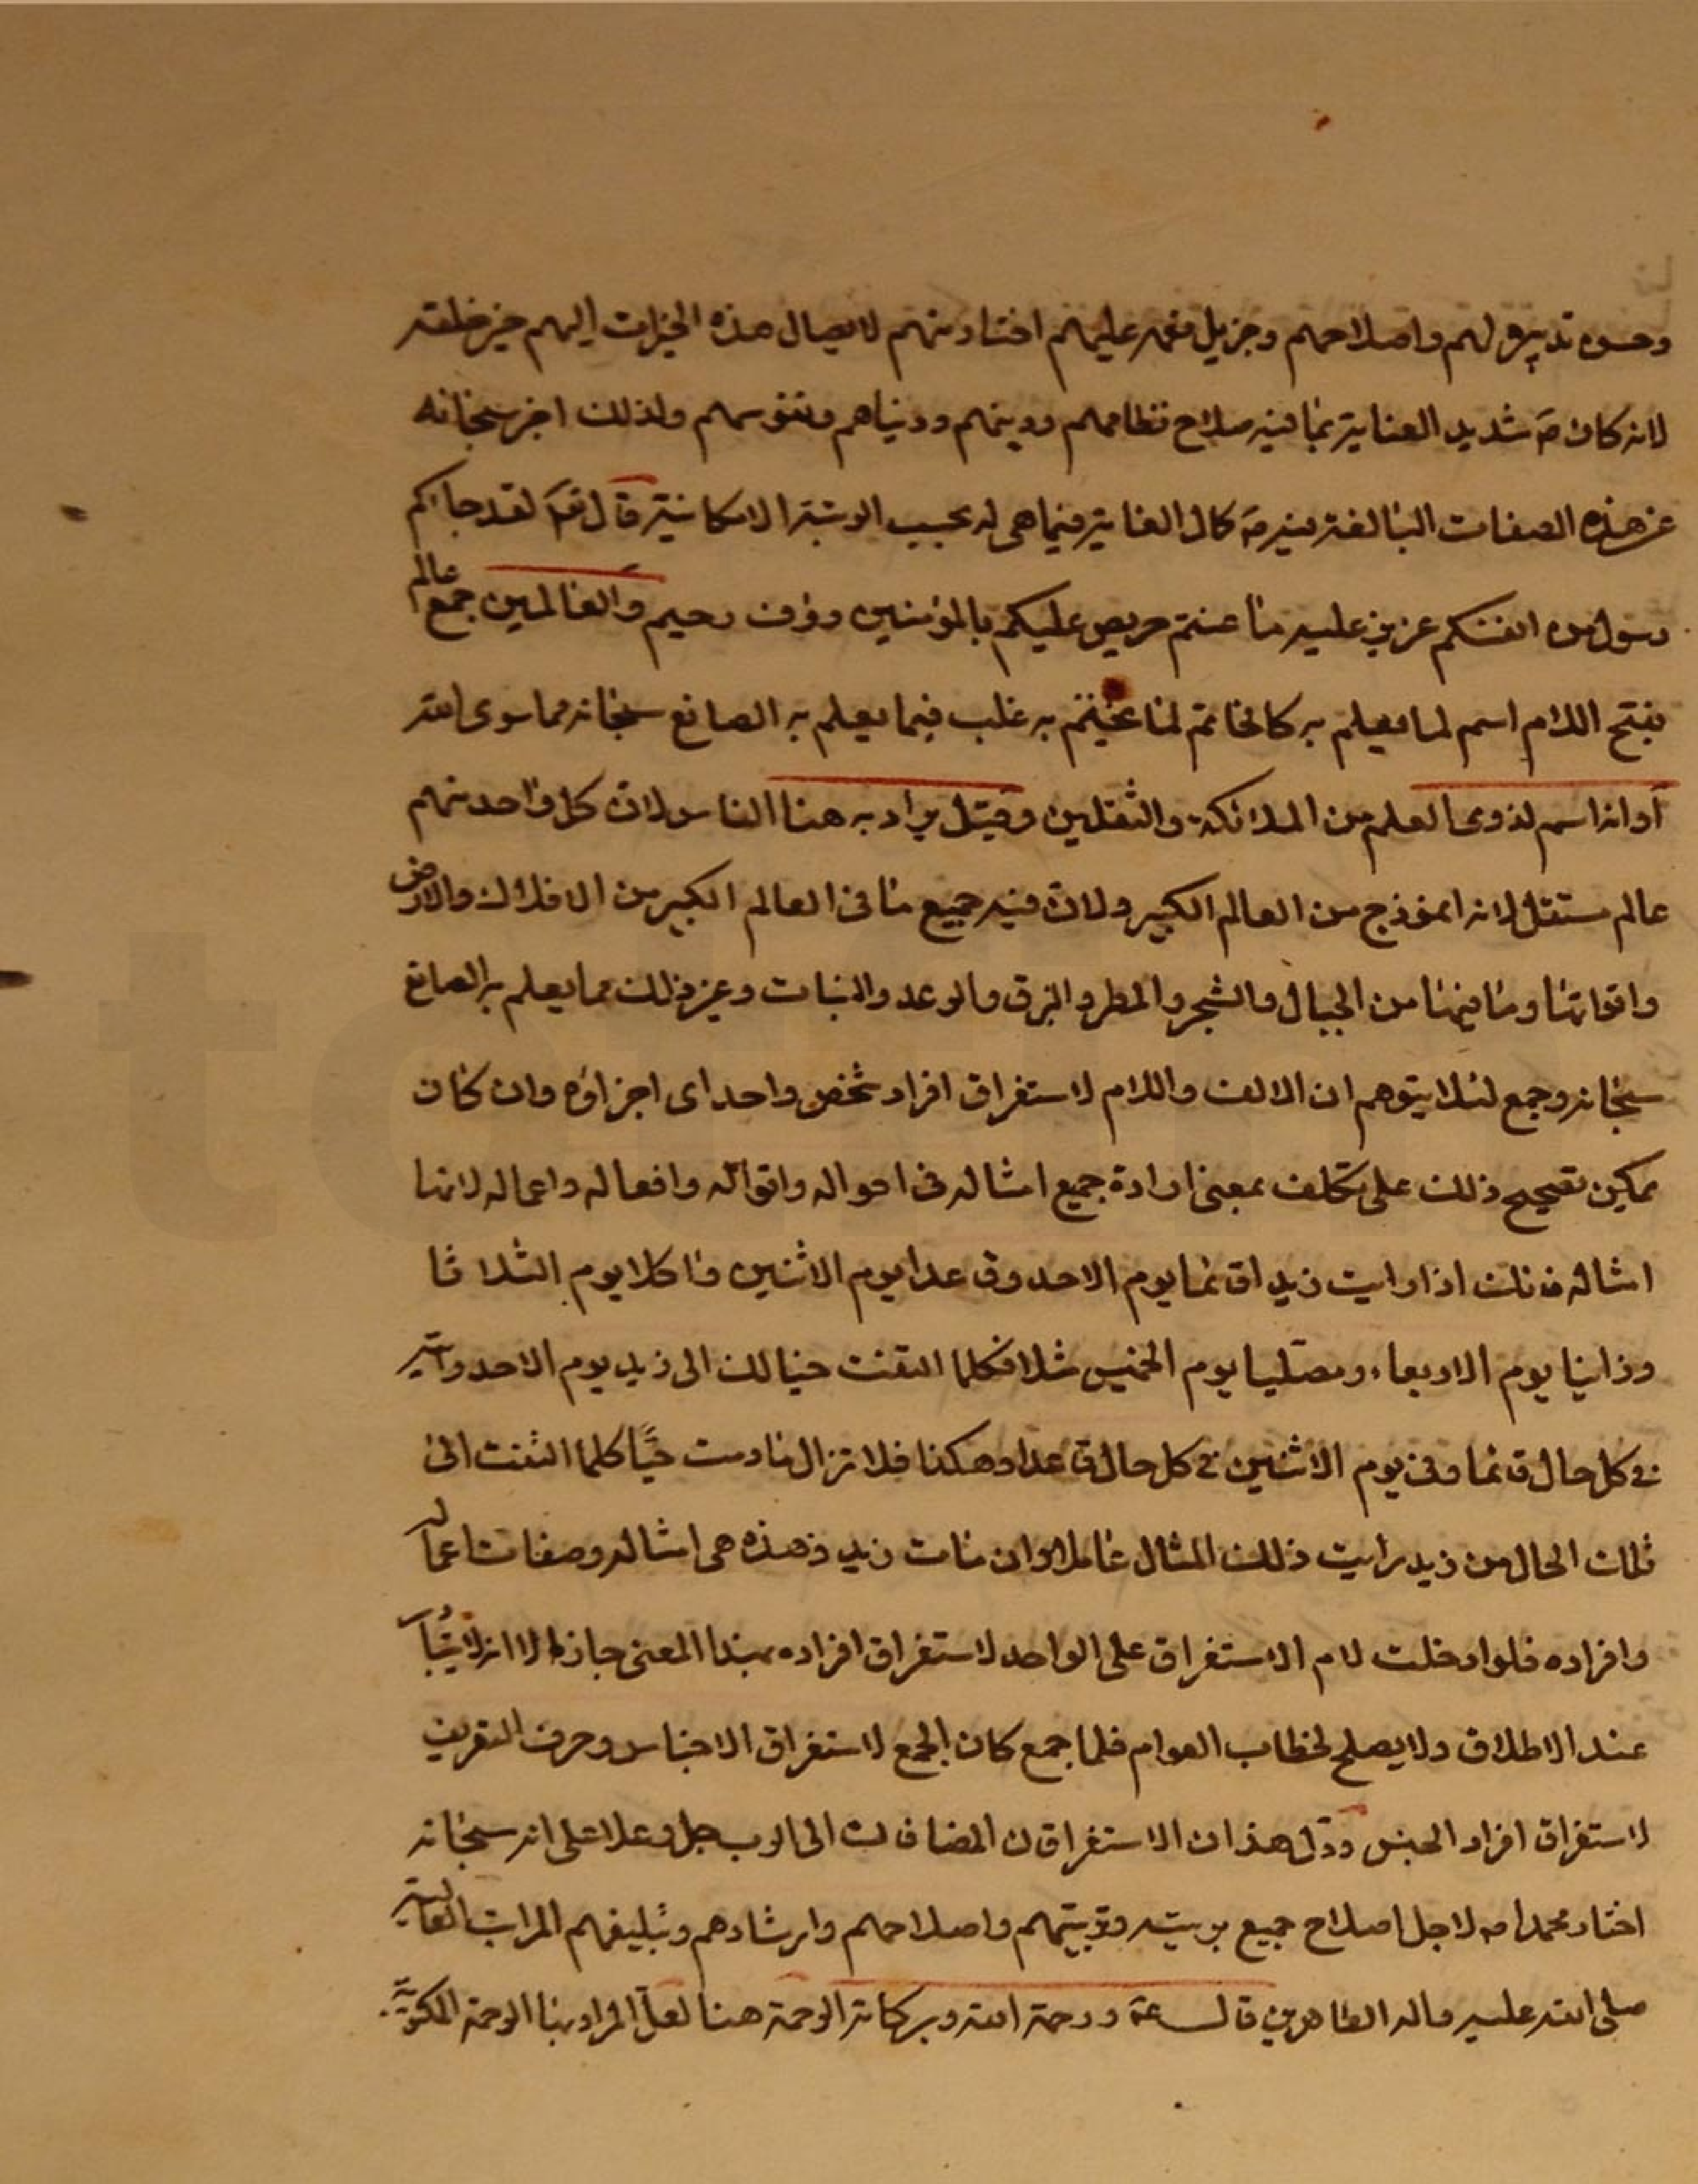 وحسن تدبيره لهم واصلاحهم وجزيل نعمه عليهم اختار منهم لايصال هذه الخيرات اليهم خير خلقه
لانه كان ص شديد العناية بما فيه صلاح نظامهم ودينهم ودنياهم ونفوسهم ولذلك اخبر سبحانه
عن هذه الصفات البالغة فيه ص كمال العناية فيما هي له بحسب الرتبة الامكانية قال تع لقد جاءكم
رسول من انفسكم عزيز عليه ما عنتم حريص عليكم بالمؤمنين رؤف رحيم والعالمين جمع عالم
بفتح اللام اسم لما يعلم به كالخاتم لما يختم به غلب فيما يعلم به الصانع سبحانه مما سوى الله
او انه اسم لذوى العلم من الملائكة والثقلين وقيل يراد به هنا الناس لان كل واحد منهم
عالم مستقل لانه انموذج من العالم الكبير ولان فيه جميع ما في العالم الكبير من الافلاك والارض
واقواتها وما فيها من الجبال والشجر والمطر والبرق والرعد والنبات وغير ذلك مما يعلم به الصانع
سبحانه وجمع لئلا يتوهم ان الالف واللام لاستغراق افراد شخص واحد اى اجزاؤه وان كان
يمكن تصحيح ذلك على تكلف بمعنى ارادة جميع امثاله في احواله واقواله وافعاله واعماله لانها
امثاله فانك اذا رايت زيدا قائما يوم الاحد وقاعدا يوم الاثنين واكلا يوم الثلاثا
وزانيا يوم الاربعاء ومصليا يوم الخميس مثلا فكلما التفت خيالك الى زيد يوم الاحد رأيته
في كل حال قائما وفي يوم الاثنين في كل حال قاعدا وهكذا فلا تزال مادمت حيًّا كلما التفت الى
تلك الحال من زيد رايت ذلك المثال عاملا وان مات زيد فهذه هي امثاله وصفات اعماله
وافراده فلو ادخلت لام الاستغراق على الواحد لاستغراق افراده بهذا المعنى جاز الا انه لا يتبادر
عند الاطلاق ولا يصلح لخطاب العوام فلما جمع كان الجمع لاستغراق الاجناس وحرف التعريف
لاستغراق افراد الجنس ودل هذان الاستغراقان المضافان الى الرب جل وعلا على انه سبحانه
اختار محمدا ص لاجل اصلاح جميع بريته وتربيتهم واصلاحهم وارشادهم وتبليغهم المراتب العالية
صلى الله عليه واله الطاهرين قال ع ورحمة الله وبركاته الرحمة هنا لعل المراد بها الرحمة المكتوبة